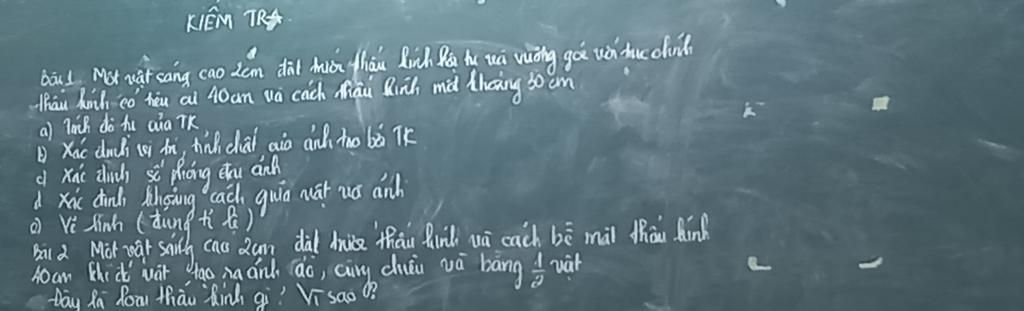 KIỂM TRA
Bài 1. Một vật sáng cao 2cm đặt trước thấu kính hội tụ và vuông góc với trục chính
thấu kính có tiêu cự 40cm và cách thấu kính một khoảng 30cm
a) Tính độ tụ của TK
b) Xác định vị trí, tính chất của ảnh tạo bởi TK
c) Xác định số phóng đại ảnh
d Xác định khoảng cách giữa vật và ảnh
e) Vẽ hình (đúng tỉ lệ)
Bài 2 Một vật sáng cao 2cm đặt trước thấu kính và cách bề mặt thấu kính
40cm khi đó vật tạo ra ảnh ảo, cùng chiều và bằng 1/2 vật
Đây là loại thấu kính gì? Vì sao?